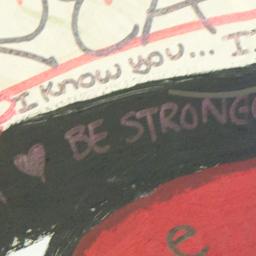 I KNOW YOU... I
BE STRONG
e